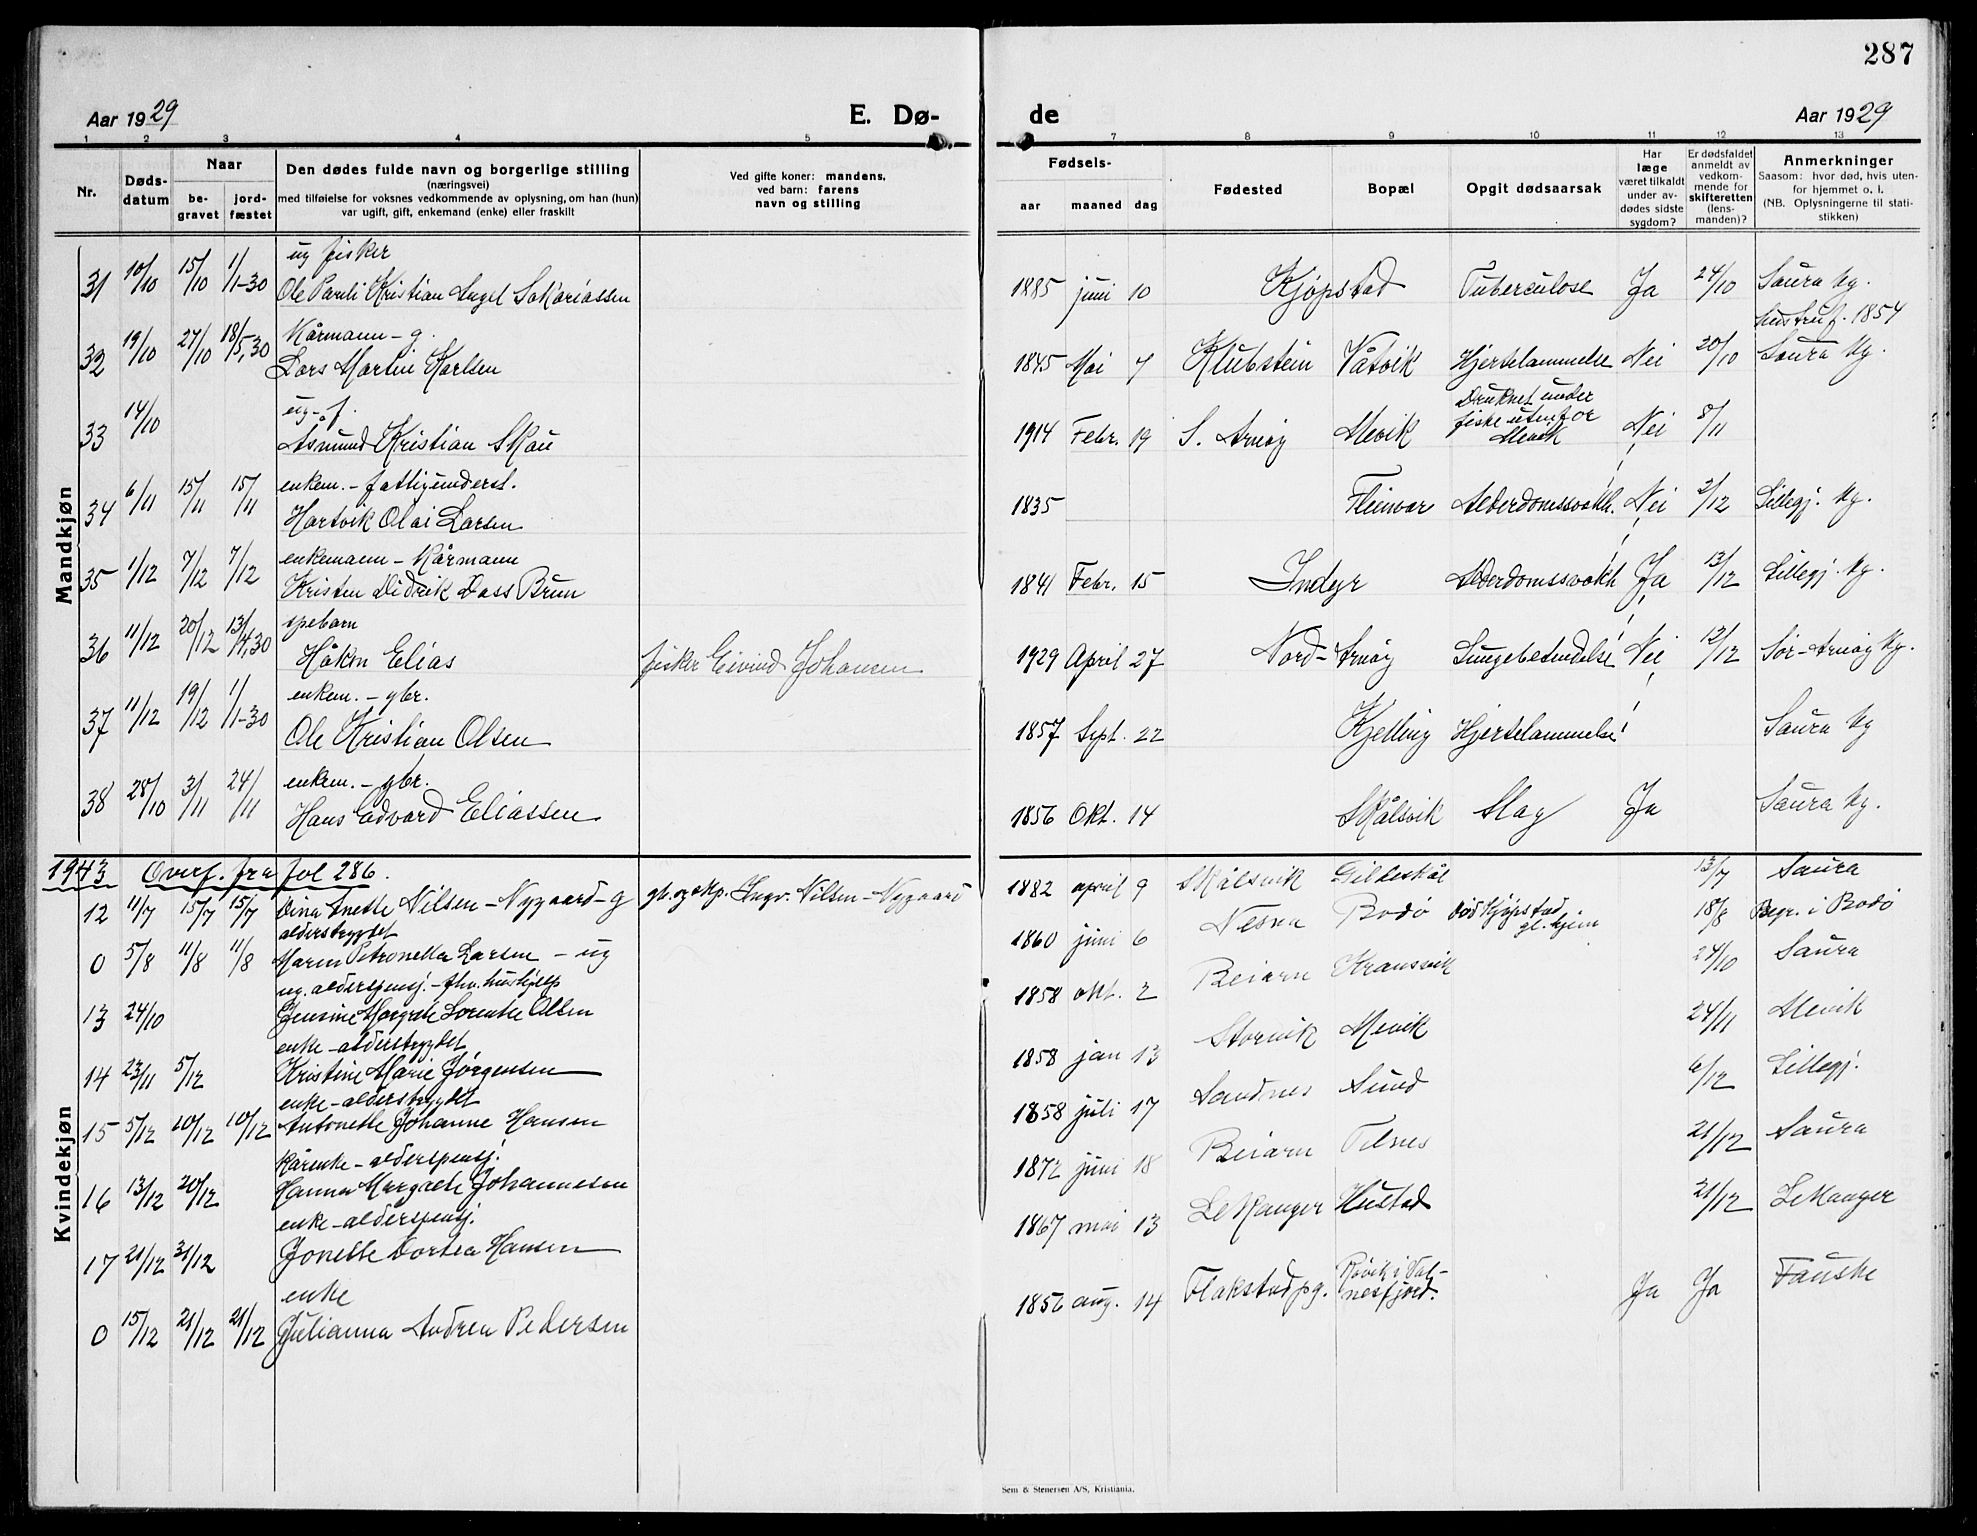 287
Aar 1929 E. Dø- de Aar 1929
1 2 3 4 5 7 8 9 10 11 12 13
Nr. Døds-datum Naar be-gravet jord-fæstet
Den dødes fulde navn og borgerlige stilling
(næringsvei)
med tilføielse for voksnes vedkommende av oplysning, om han (hun)
var ugift, gift, enkemand (enke) eller fraskilt
Ved gifte koner: mandens,
ved barn: farens
navn og stilling
Fødsels- aar maaned dag
Fødested Bopæl Opgit dødsaarsak
Har læge været tilkaldt under av-dødes sidste sygdom?
Er dødsfaldet anmeldt av vedkom-mende for skifteretten (lens-manden)?
Anmerkninger
Saasom: hvor død, hvis uten-for hjemmet o. l.
(NB. Oplysningerne til stati-stikken)
Mandkjøn
ug fisker
31 10/10 15/10 1/1-30 Ole Pauli Kristian Angel Sakariassen 1885 juni 10 Kjøpstad Tuberculose Ja 24/10 Saura kg.
Kårmann - g. hustru f. 1854
32 19/10 27/10 18/5.30 Lars Martin Karlsen 1845 Mai 7 Klubstein Våtvik Hjertelammelse Nei 20/10 Saura kg.
ug - f.
33 14/10 Asmund Kristian Skau 1914 Febr. 19 S. Arnøy Mevik Druknet under fiske utenfor Mevik Nei 8/11
enkem. - fattigunderst.
34 6/11 15/11 15/11 Hartvik Olai Larsen 1835 Fleinvær Alderdomssvakh. Nei 2/12 Lillegj. kg.
enkemann - Kårmann
35 1/12 7/12 7/12 Kristen Didrik Dass Brun 1841 Febr. 15 Indyr Alderdomssvakh Ja 13/12 Lillegj. kg.
spebarn
36 11/12 20/12 13/4.30 Håkon Elias fisker Eivind Johansen 1929 April 27 Nord-Arnøy Lungebetendelse Nei 12/12 Sør-Arnøy kg.
enkem. - gbr.
37 11/12 19/12 1/1-30 Ole Kristian Olsen 1857 Sept. 22 Kjelling Hjertelammelse Saura kg
enkem. - gbr.
38 28/10 3/11 24/11 Hans Edvard Eliassen 1856 Okt. 14 Skålsvik Slag Ja Saura kg.
1943 Overf. fra fol 286.
Kvindekjøn
12 11/7 15/7 15/7 Dina Anette Nilsen - Nygaard - g gb. og skp. Ingv. Nilsen - Nygaard 1882 april 9 Skålsvik Gildeskål 13/7 Saura
alderstrygdet
0 5/8 11/8 11/8 Maren Petronella Larsen - ug 1860 juni 6 Nesna Bodø død Kjøpstad gl. hjem 18/8 Begr. i Bodø
ug. alderspensj. - fhv. hushjelp
13 24/10 Jensine Margrete Lorentse Olsen 1858 okt. 2 Beiarn 24/10 Saura
enke - alderstrygdet
14 23/11 5/12 Kristine Marie Jørgensen 1858 jan 13 Storvik Mevik 24/11 Mevik
enke - alderstrygdet
15 5/12 10/12 10/12 Antonette Johanne Hansen 1858 juli 17 Sandnes Sund 6/12 Lillegj.
Kårenke - alderspensj.
16 13/12 20/12 Hanna Margrete Johannesen 1872 juni 18 Beiarn Telnes 21/12 Saura
enke - alderspensj.
17 21/12 31/12 Jonette Dortea Hansen 1867 mai 13 Lekanger Hustad 21/12 Lekanger
enke
0 15/12 21/12 21/12 Julianna Andrea Pedersen 1856 aug. 14 Flakstad pg. Røvik i Val-nesfjord. Ja Ja Fauske
Sem & Stenersen A/S, Kristiania.